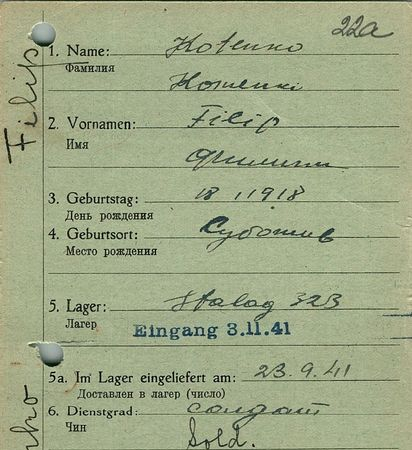 22a
Filip
1. Name: Kotenko
Фамилия
2. Vornamen: Filip
Имя
Филипп
3. Geburtstag: 18 1 1918
День рождения
4. Geburtsort: Суботив
Место рождения
5. Lager: Stalag 323
Лагер
Eingang 3.11.41
5a. Im Lager eingeliefert am: 23.9.41
Доставлен в лагер (число)
6. Dienstgrad: солдат
Чин
Sold.